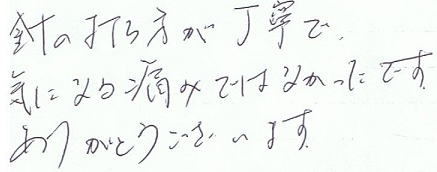 針の打ち方が丁寧で、
気になる痛みではなかったです。
ありがとうございます。